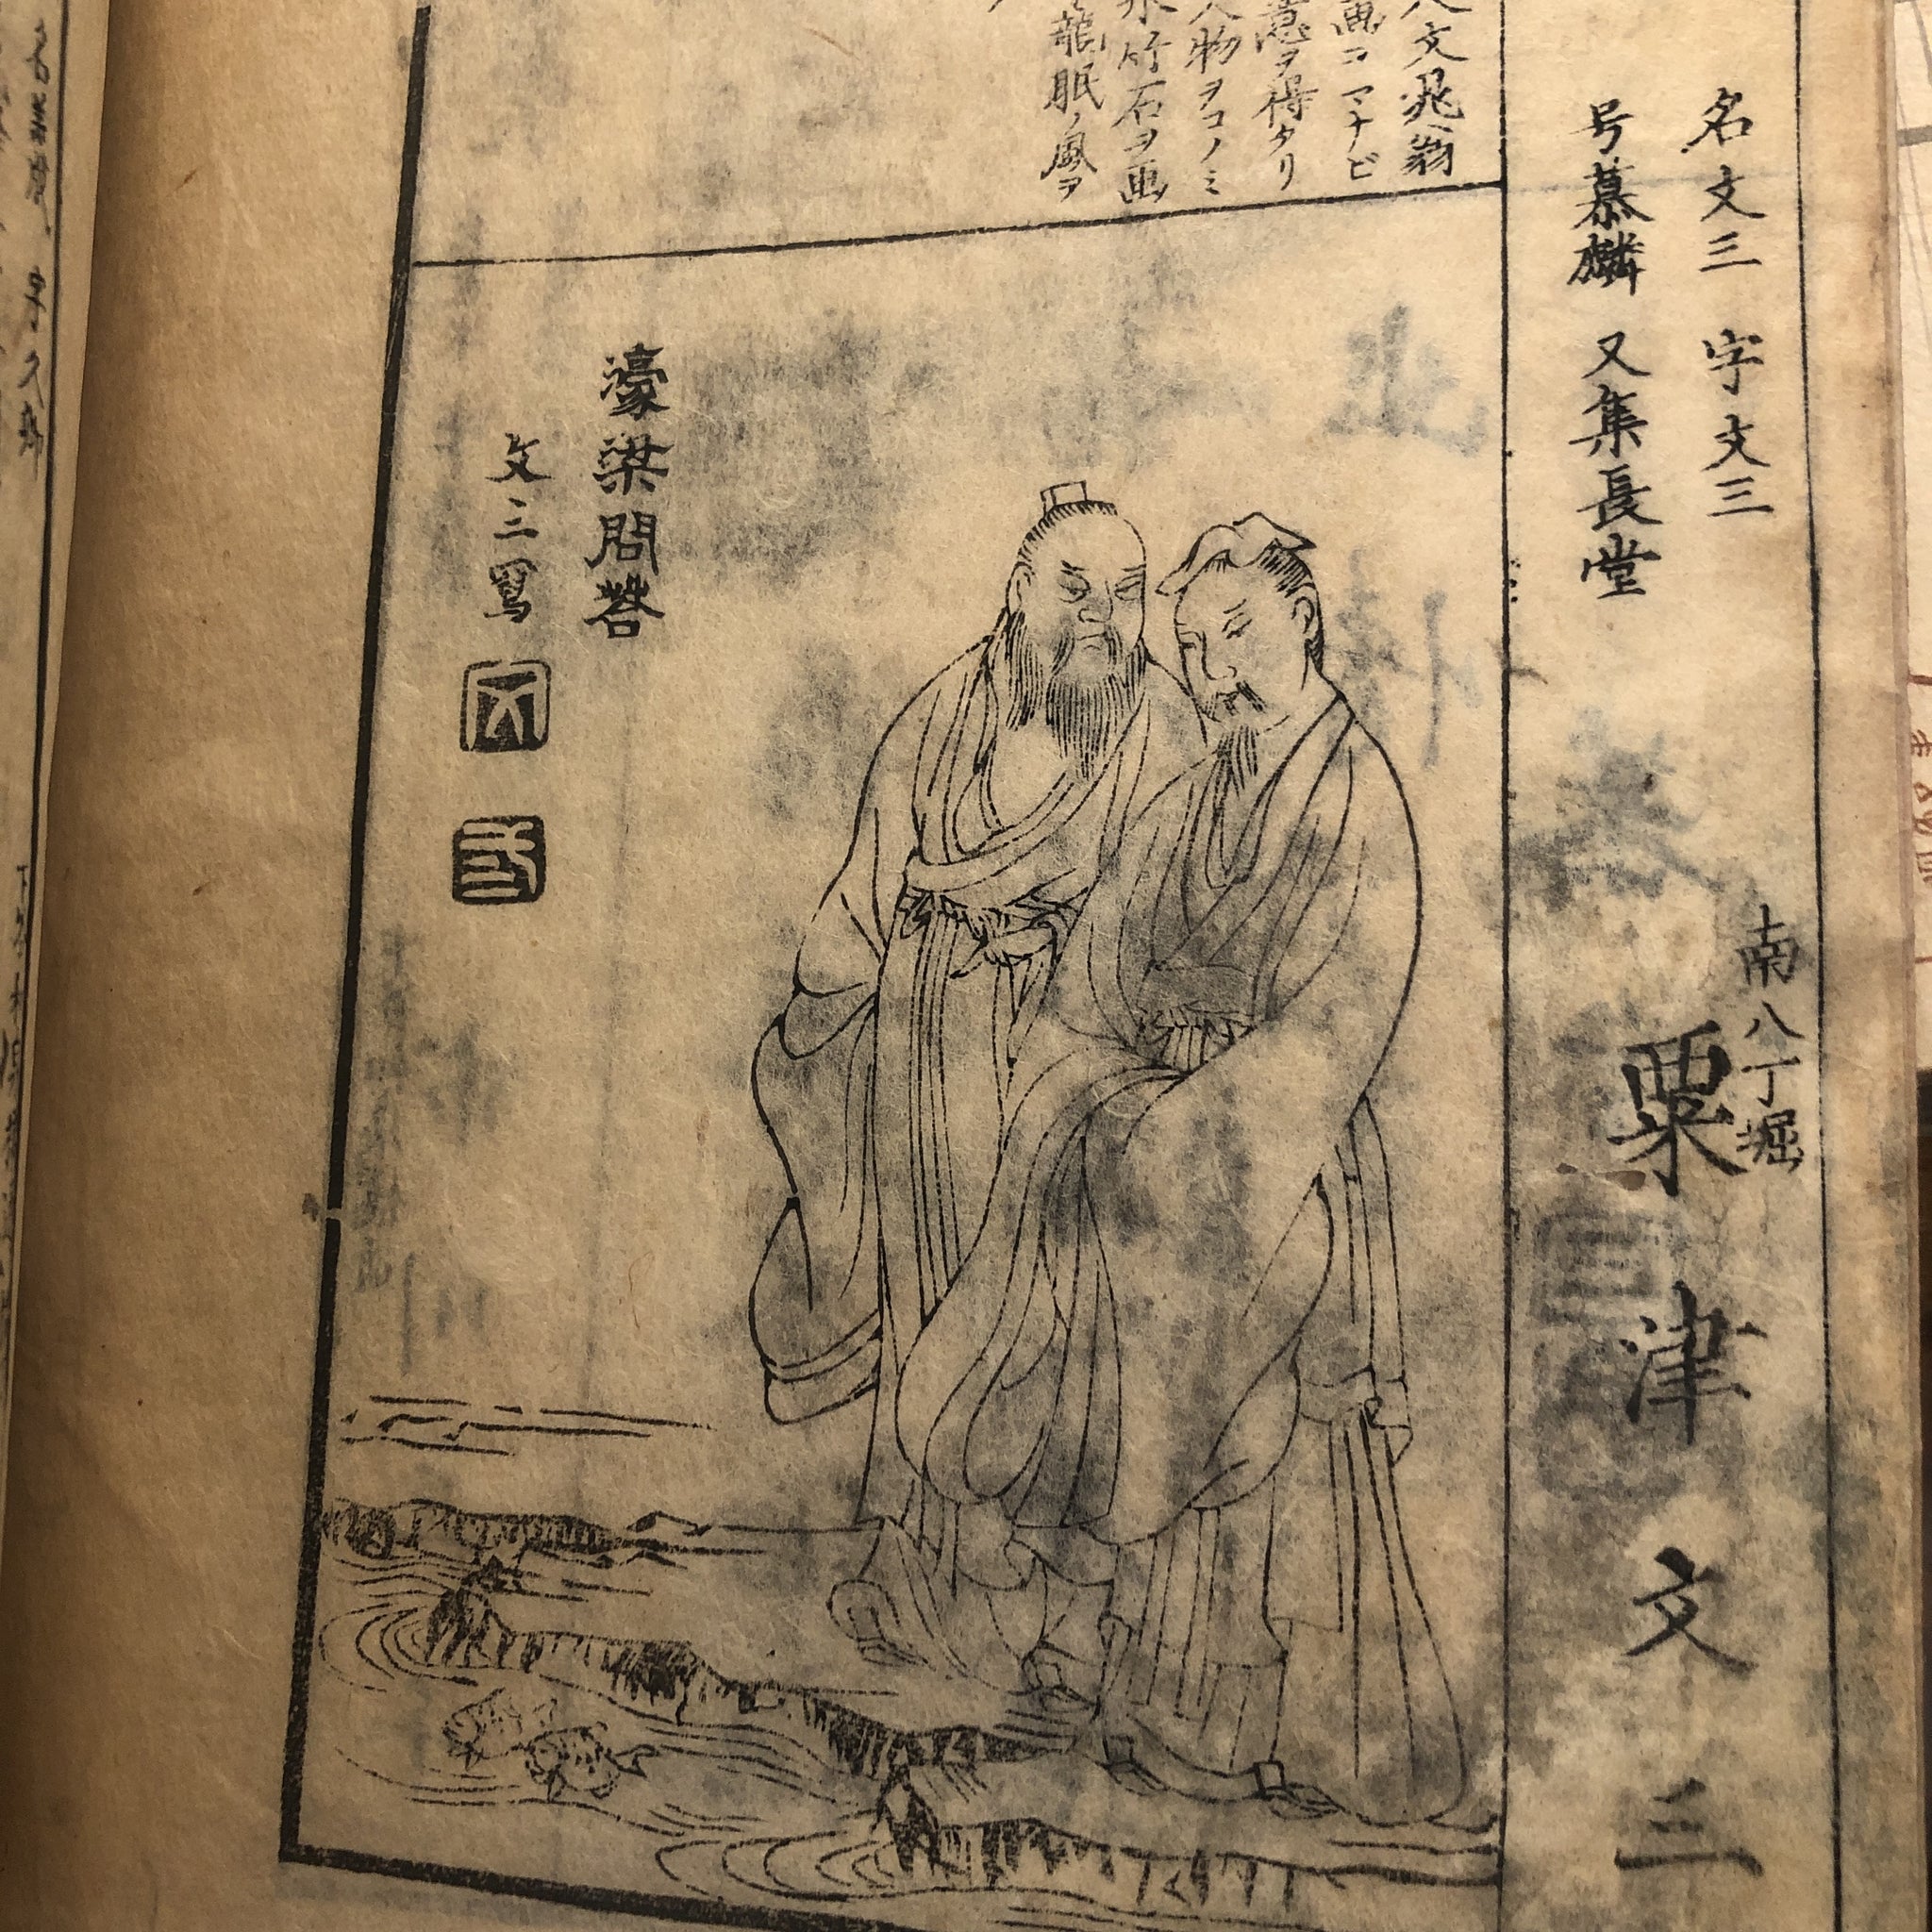 名文三 字文三
号慕麟 又集長堂
南八丁堀
粟津文三
文晁翁
画コマナビ
意ヲ得タリ
人物ヲコノミ
水竹石ヲ画
龍眠ノ風ヲ
濠梁問荅
文三寫